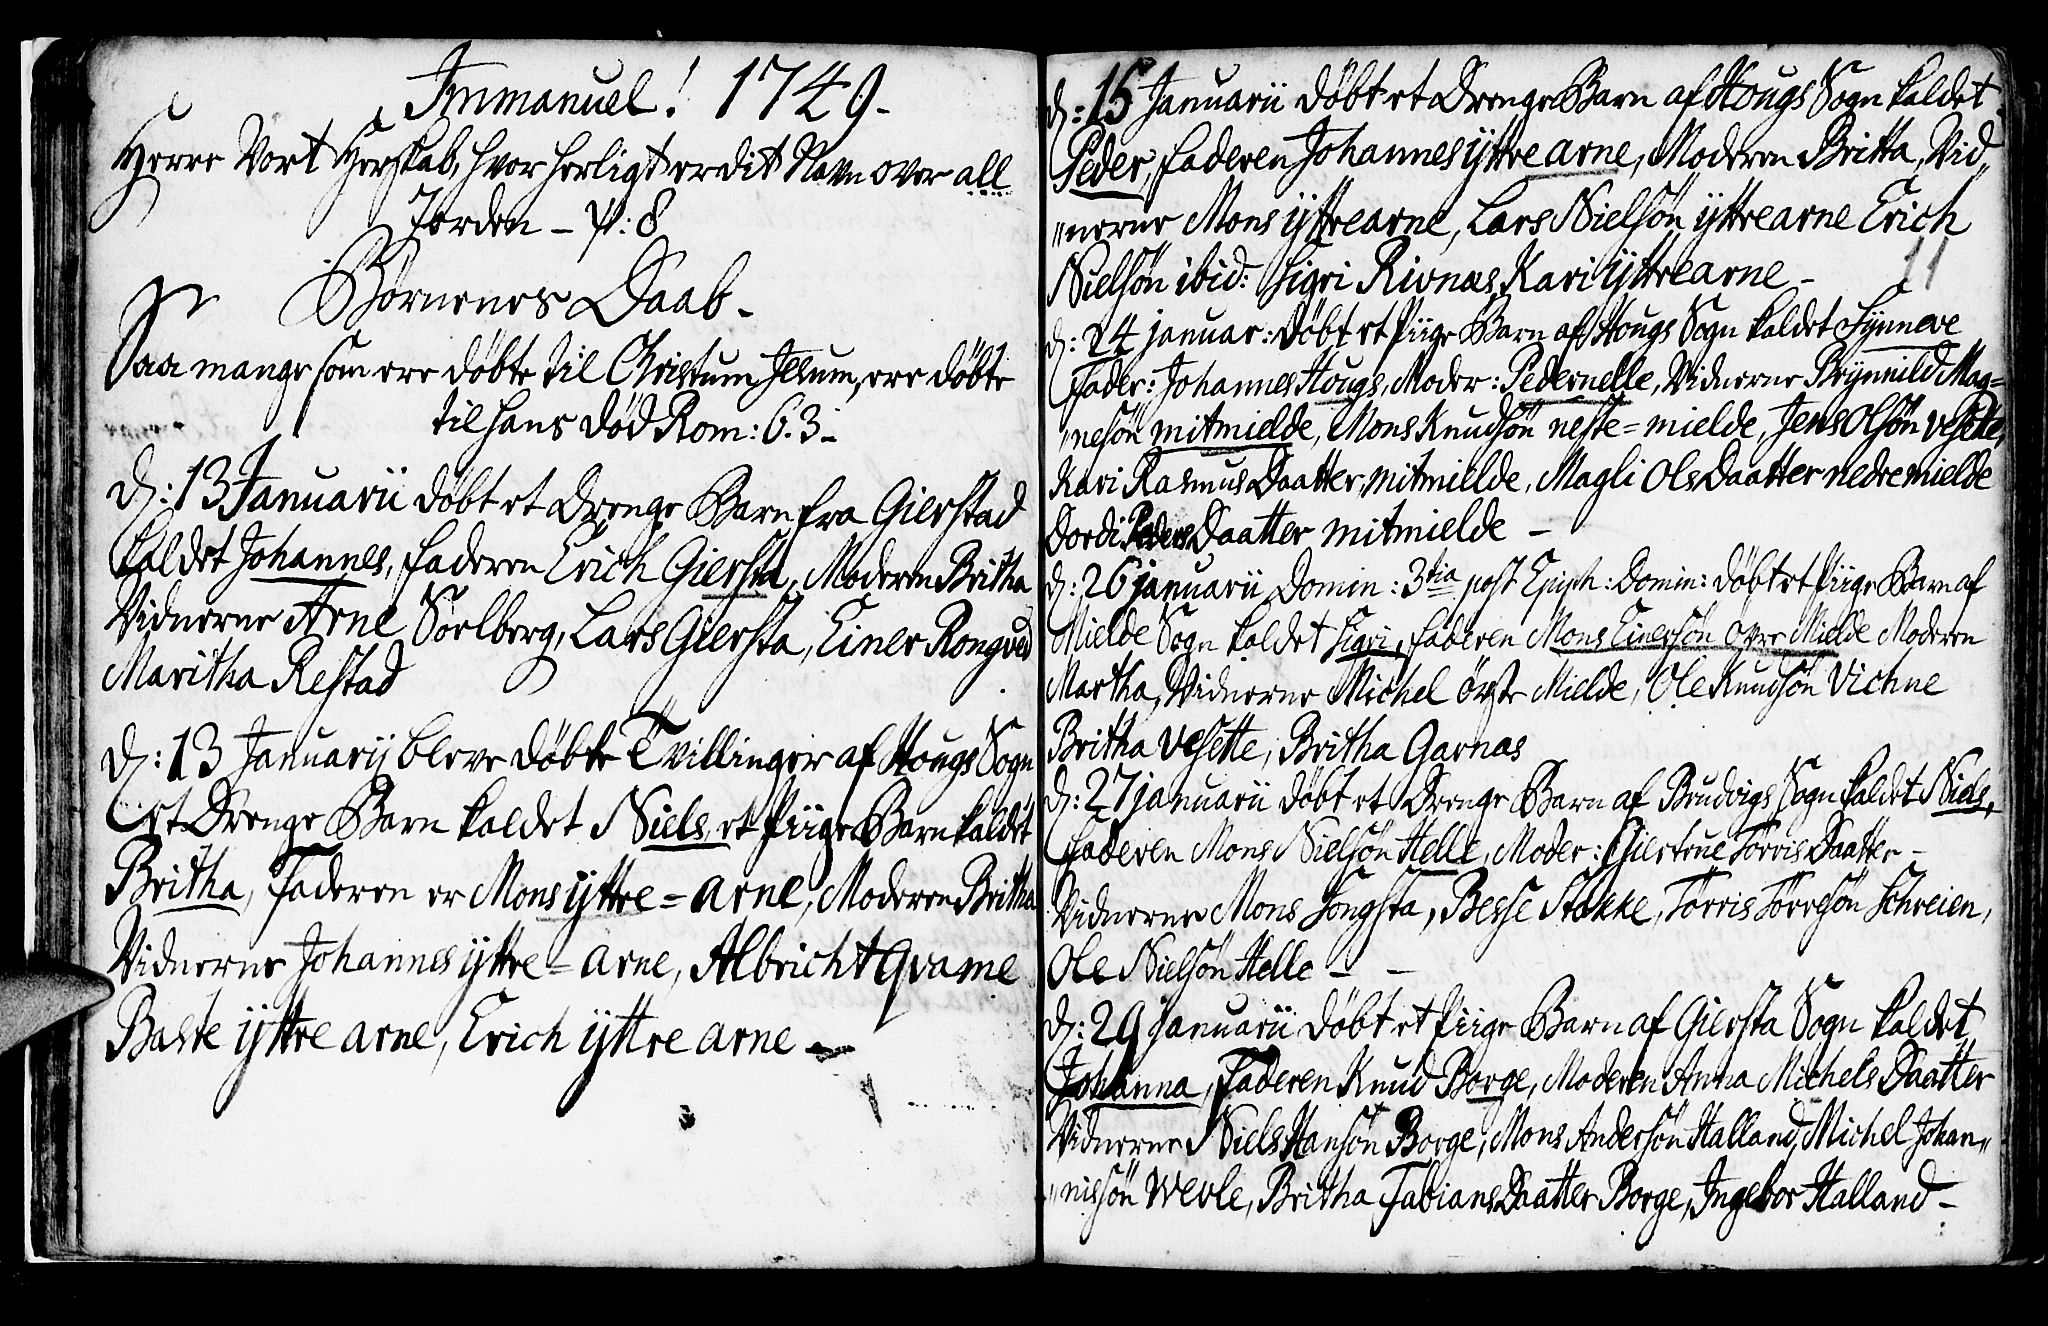 Immanuel! 1749.
Herre Vort Herskab, hvor herligt er dit Navn over all
Jorden – Ps: 8
Børnenes Daab.
Saa mange som ere døbte til Christum Jesum, ere døbte
til hans død Rom: 6. 3.
D: 13 Januarii døbt et Drenge Barn fra Gierstad
kaldet Johannes, faderen Erich Giersta, Moderen Britha
Vidnerne Arne Soelberg, Lars Giersta, Einer Rongved
Maritha Restad
D: 13 Januarij bleve døbte Tvillinger af Hougs Sogn
et Drenge Barn kaldet Niels, et Piige Barn kaldet
Britha, Faderen er Mons ÿttre=arne, Moderen Britha
Vidnerne Johannes ÿttre=arne, Albricht Qvame
Baste ÿttre arne, Erich ÿttre arne –
d: 15 Januarii døbt et Drenge Barn af Hougs Sogn kaldet
Peder, faderen Johannes ÿttre arne, Moderen Britta, Vid„
„nerne Mons ÿttrearne, Lars Nielsön ÿttrearne Erich
Nielsön ibid: Sigri Rivnæs, Kari ÿttrearne –
11
d: 24 januar: døbt et Piige Barn af Hougs Sogn kaldet Sÿnneve
Fader: Johannes Hougs, Moder: Pedernelle, Vidnerne Brÿnnild Mag=
„nesön mitmielde, Mons Knudsön neste=mielde, Jens Olsön Vesette,
Kari Rasmus Daatter mitmielde, Magli Ols Daatter nedre mielde
Dordi Peders Daatter mitmielde –
d: 26 januarii Domin: 3tia post Epiph: Domin: døbt et Piige Barn af
Mielde Sogn kaldet Sigri, faderen Mons Einersön övre Mielde Moderen
Martha, Vidnerne Michel övste Mielde, Ole Knudsön Vichne
Britha Vesette, Britha Garnas
d: 27 januarii døbt et Drenge Barn af Brudvigs Sogn kaldet Niels,
Faderen Mons Nielsön Helle, Moder: Giertrue Törris Daatter –
Vidnerne Mons Songsta, Besse Stokke, Törris Törresön Schreien,
Ole Nielsön Helle – –
d: 29 januarii døbt et Piige Barn af Giersta Sogn kaldet
Johanna, Faderen Knud Borge, Moderen Anna Michels Daatter
Vidnerne Niels Hansön Borge, Mons Andersön Halland, Michel Johan„
„nissön Wevle, Britha Fabians Daatter Borge, Ingebor Halland –